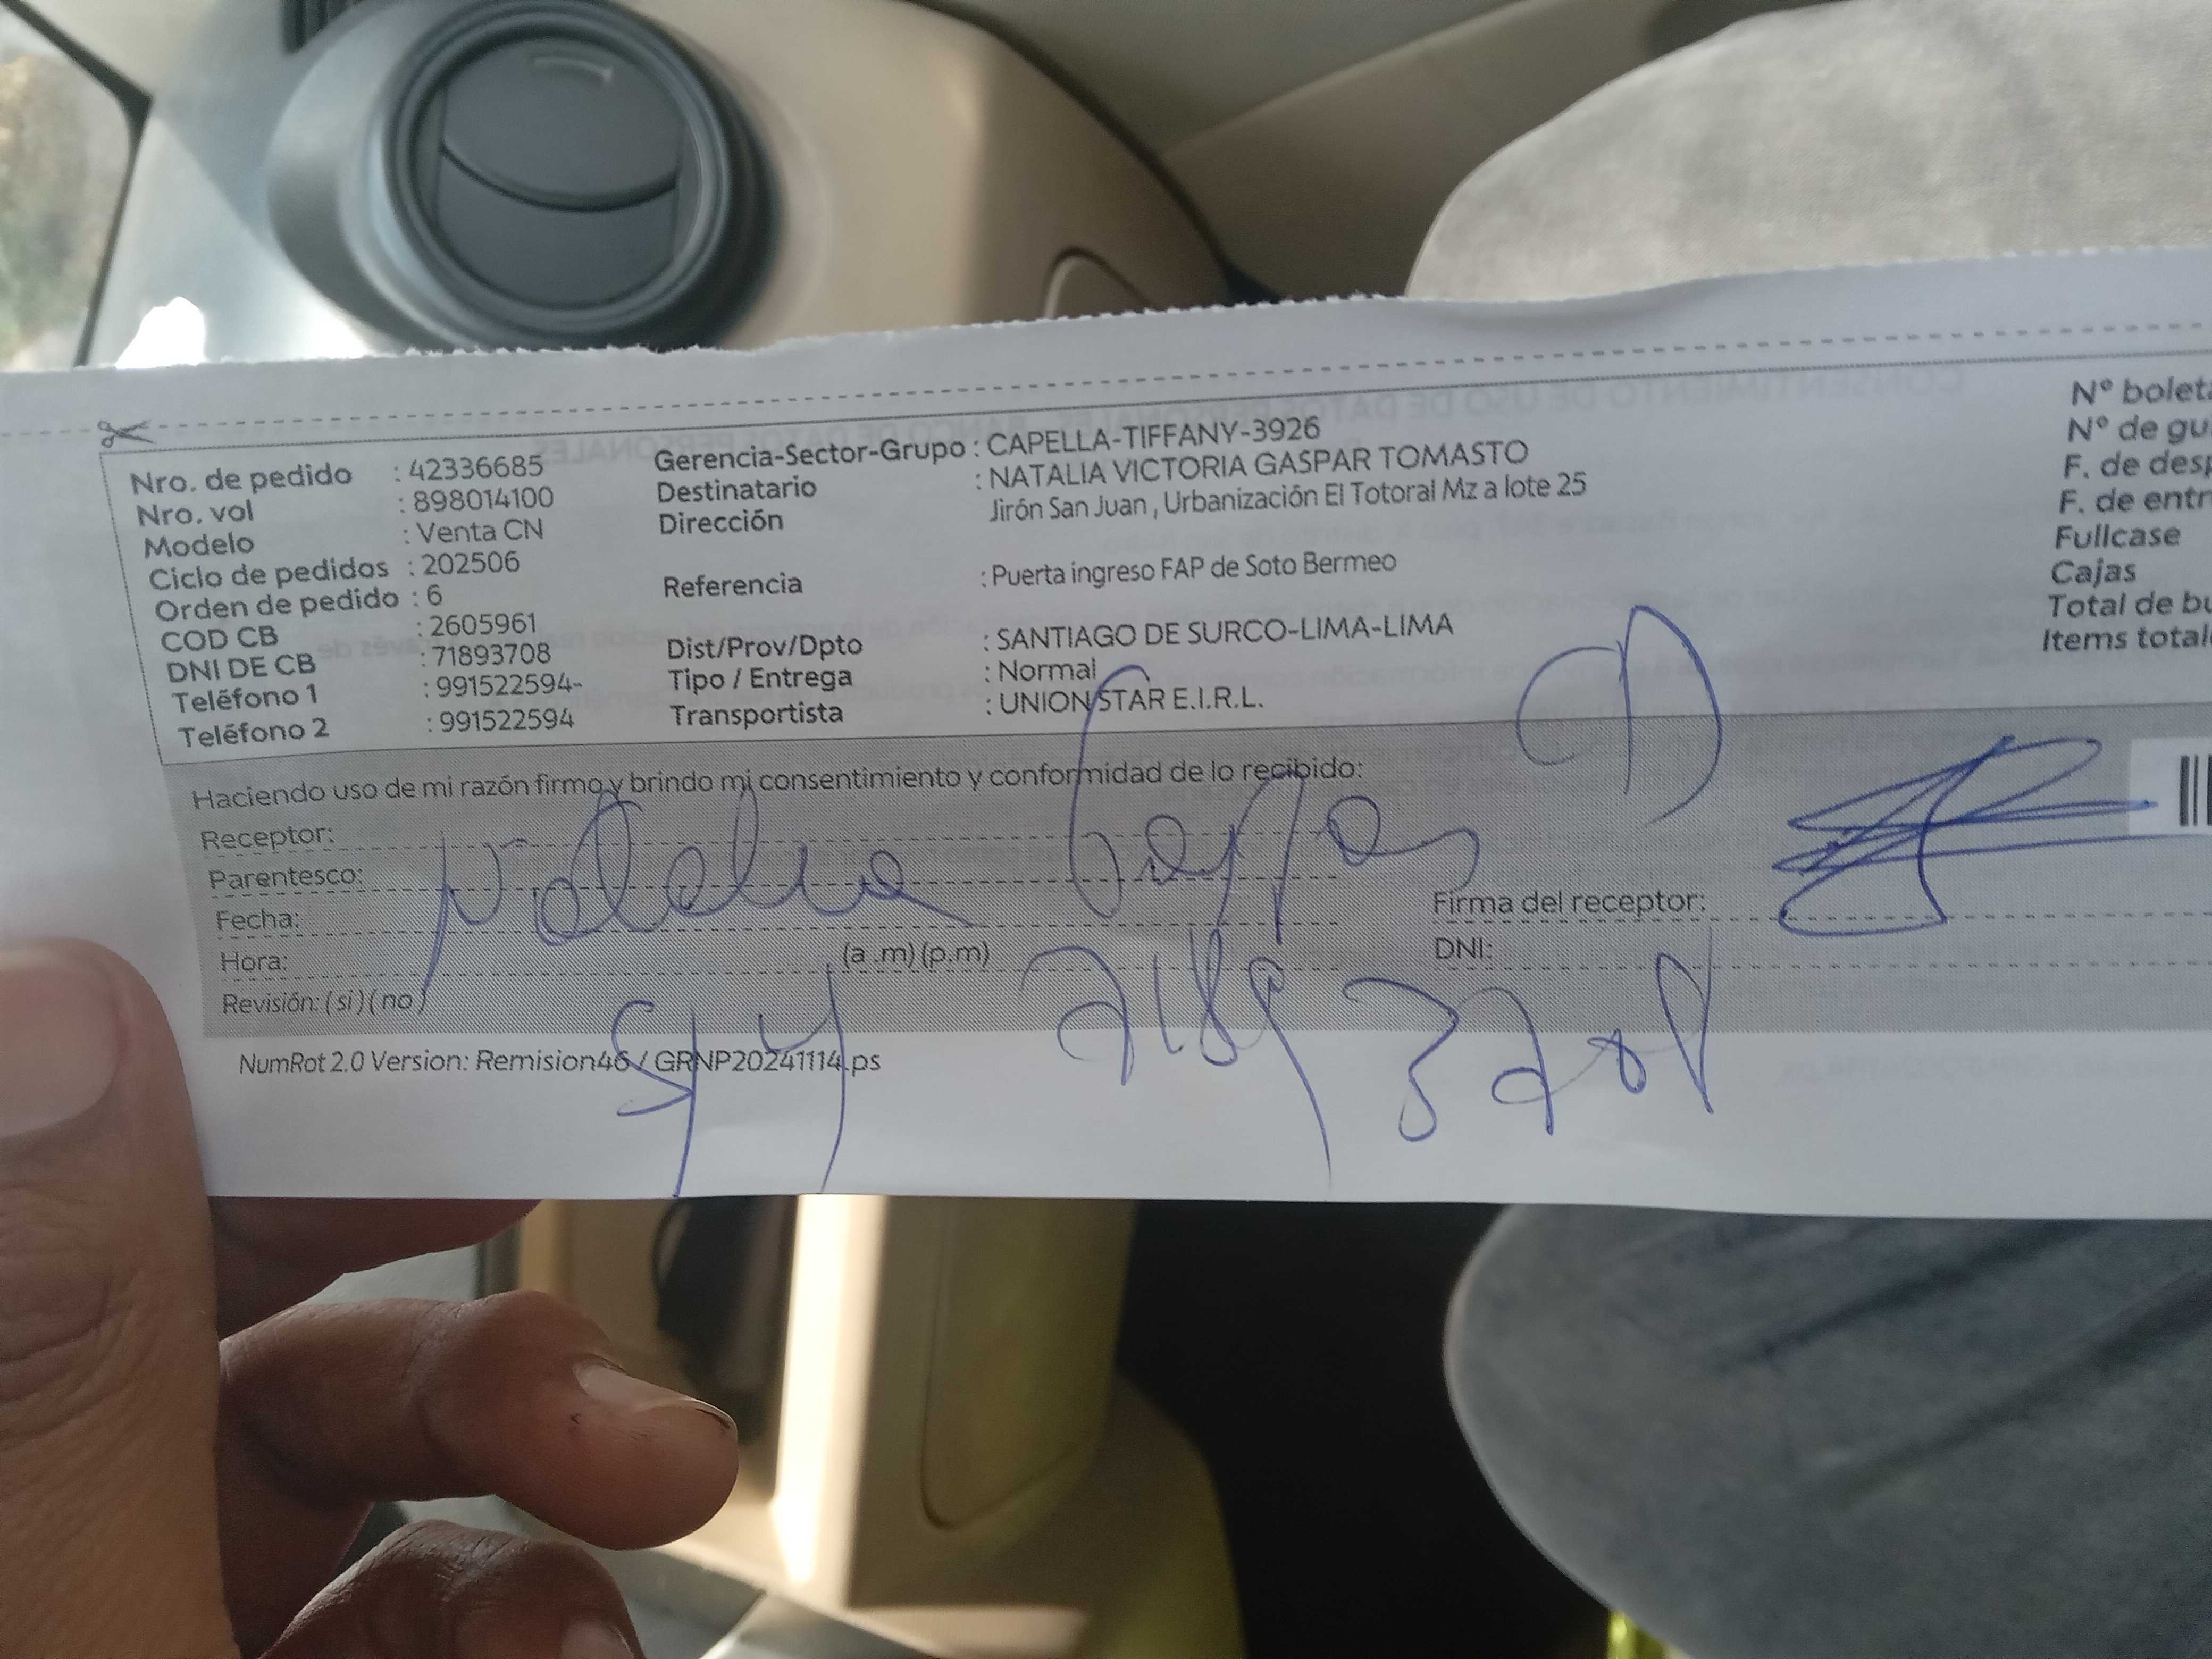 Nro. de pedido : 42336685
Nro. vol : 898014100
Modelo : Venta CN
Ciclo de pedidos : 202506
Orden de pedido : 6
COD CB : 2605961
DNI DE CB : 71893708
Teléfono 1 : 991522594-
Teléfono 2 : 991522594
Gerencia-Sector-Grupo : CAPELLA-TIFFANY-3926
Destinatario : NATALIA VICTORIA GASPAR TOMASTO
Dirección Jirón San Juan , Urbanización El Totoral Mz a lote 25
Referencia : Puerta ingreso FAP de Soto Bermeo
Dist/Prov/Dpto : SANTIAGO DE SURCO-LIMA-LIMA
Tipo / Entrega : Normal
Transportista : UNION STAR E.I.R.L.
Nº
Nº de
F. de
F. de
Fullcase
Cajas
Total de
Items
Haciendo uso de mi razón firmo y brindo mi consentimiento y conformidad de lo recibido:
Receptor:
Parentesco:
Fecha:
Hora: (a .m) (p.m)
Revisión: ( si ) ( no )
Natalia
Firma del receptor:
DNI:
NumRot 2.0 Version: Remision46 / GRNP20241114.ps